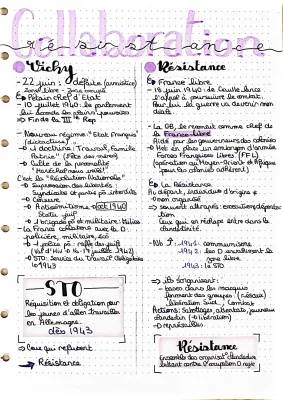 Collaboration
résistance
Vichy
- 22 juin : défaite (armistice)
zone libre - zone occupée
Pétain chef d'Etat
- 10 juillet 1940 : le parlement
lui accorde les pleins pouvoirs
⇒ Fin de la IIIe Rép
- Nouveau régime "Etat Français"
(dictature)
↳ doctrine : Travail, Famille
Patrie" (fête des mères)
↳ Culte de la personnalité
"Maréchal nous voilà"
C'est la "Révolution Nationale"
↳ Suppression des libertés
Syndicats et partis po interdits
↳ Censure
↳ Antisémitisme → oct 1940
Statut juif
↳ brigade po et militaire : Milice
- La France collabore avec le D.
politique, militaire, éco
↳ police : rafle des juifs
(Vel d'Hiv 16 - 17 juillet 1942)
↳ STO : service du Travail Obligatoire
↳ 1943
STO
Réquisition et obligation pour
les jeunes d'aller travailler
en Allemagne
dès 1943
⇒ Ceux qui refusent
→ Résistance
Résistance
France libre
- 18 juin 1940 : de Gaulle lance
l'appel à poursuivre le combat.
Pour lui la guerre va devenir mon
diale.
- La GB, le reconnait comme chef de
la France libre
Aidé par les gouvernants des colonies
→ Met en place un embryon d'armée
Forces Françaises Libres (FFL)
(opération au Moyen-Orient et Afrique
pour les colonies adhérent)
La Résistance
Au départ, individus d'origine
non organisé
⇒ souvent attrapés : exécution/déporta-
tion
Ceux qui en réchappe entre dans la
clandestinité.
Nb ↑
1941 : communisme
1942 : les D. envahissent la
zone libre
1943 : le STO
⇒ Ils s'organisent :
- basés dans les maquis
forment des groupes (réseau)
libération Sud, Combat
Actions : Sabotages, attentats, journaux
clandestin (→ libération)
↳ représailles
Résistance
Ensemble des organisat° clandestines
luttant contre l'occupation D